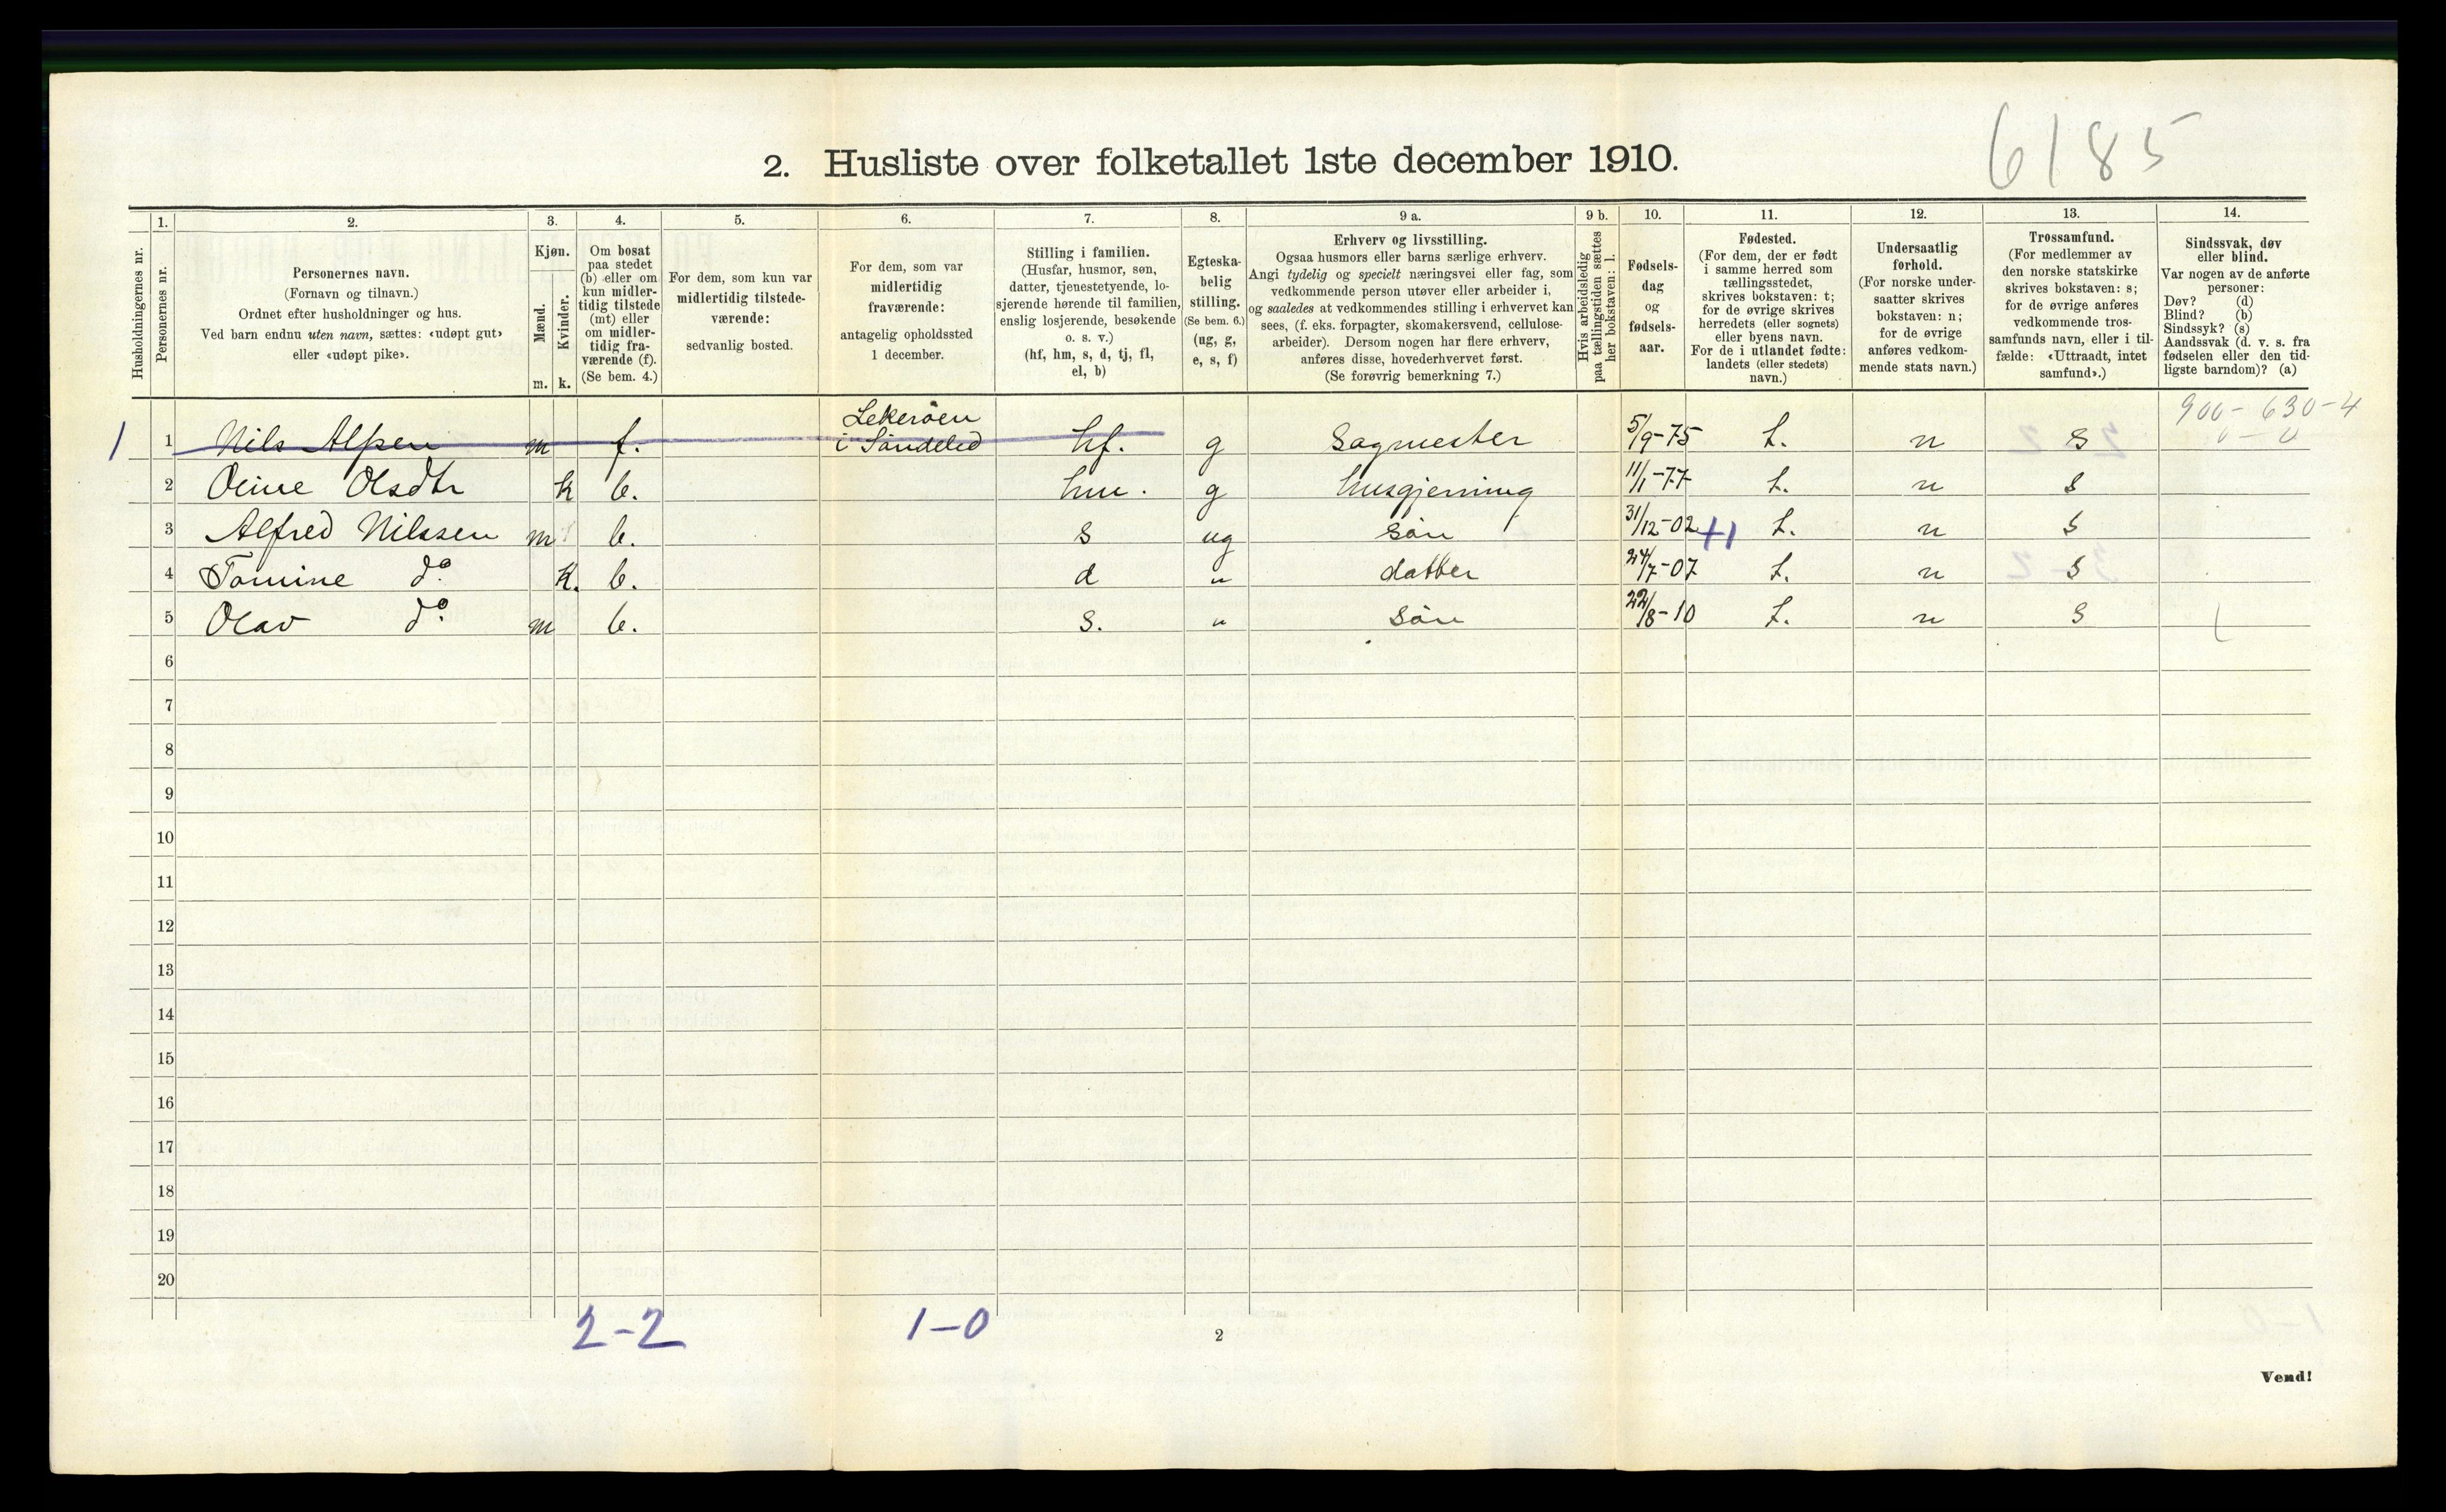 6185
2. Husliste over folketallet 1ste december 1910.
Husholdningernes nr.
1.
Personernes nr.
2.
Personernes navn.
(Fornavn og tilnavn.)
Ordnet efter husholdninger og hus.
Ved barn endnu uten navn, sættes: «udøpt gut»
eller «udøpt pike».
3.
Kjøn.
Mænd.
Kvinder.
m. k.
4.
Om bosat
paa stedet
(b) eller om
kun midler-
tidig tilstede
(mt) eller
om midler-
tidig fra-
værende (f).
(Se bem. 4.)
5.
For dem, som kun var
midlertidig tilstede-
værende:
sedvanlig bosted.
6.
For dem, som var
midlertidig
fraværende:
antagelig opholdssted
1 december.
7.
Stilling i familien.
(Husfar, husmor, søn,
datter, tjenestetyende, lo-
sjerende hørende til familien,
enslig losjerende, besøkende
o. s. v.)
(hf, hm, s, d, tj, fl,
el, b)
8.
Egteska-
belig
stilling.
(Se bem. 6.)
(ug, g,
e, s, f)
9 a.
Erhverv og livsstilling.
Ogsaa husmors eller barns særlige erhverv.
Angi tydelig og specielt næringsvei eller fag, som
vedkommende person utøver eller arbeider i,
og saaledes at vedkommendes stilling i erhvervet kan
sees, (f. eks. forpagter, skomakersvend, cellulose-
arbeider). Dersom nogen har flere erhverv,
anføres disse, hovederhvervet først.
(Se forøvrig bemerkning 7.)
9 b.
Hvis arbeidsledig
paa tællingstiden sættes
her bokstaven: l.
10.
Fødsels-
dag
og
fødsels-
aar.
11.
Fødested.
(For dem, der er født
i samme herred som
tællingsstedet,
skrives bokstaven: t;
for de øvrige skrives
herredets (eller sognets)
eller byens navn.
For de i utlandet fødte:
landets (eller stedets)
navn.)
12.
Undersaatlig
forhold.
(For norske under-
saatter skrives
bokstaven: n;
for de øvrige
anføres vedkom-
mende stats navn.)
13.
Trossamfund.
(For medlemmer av
den norske statskirke
skrives bokstaven: s;
for de øvrige anføres
vedkommende tros-
samfunds navn, eller i til-
fælde: «Uttraadt, intet
samfund».)
14.
Sindssvak, døv
eller blind.
Var nogen av de anførte
personer:
Døv? (d)
Blind? (b)
Sindssyk? (s)
Aandssvak (d. v. s. fra
fødselen eller den tid-
ligste barndom)? (a)
900-630-4
0-0
Lekeröen
1 1 Nils Alfsen m f. i Söndeled hf. g Sagmester 5/9-75 t. n s
2 Oline Olsdtr k b. hm. g husgjerning 11/1-77 t. n s
3 Alfred Nilssen m b. s ug sön 31/12-02 +1 t. n s
4 Tomine do. k. b. d " datter 24/7-07 t. n s
5 Olav do. m b. s. " sön 22/8-10 t. n s
6
7
8
9
10
11
12
13
14
15
16
17
18
19
20
2-2 1-0
2
Vend!